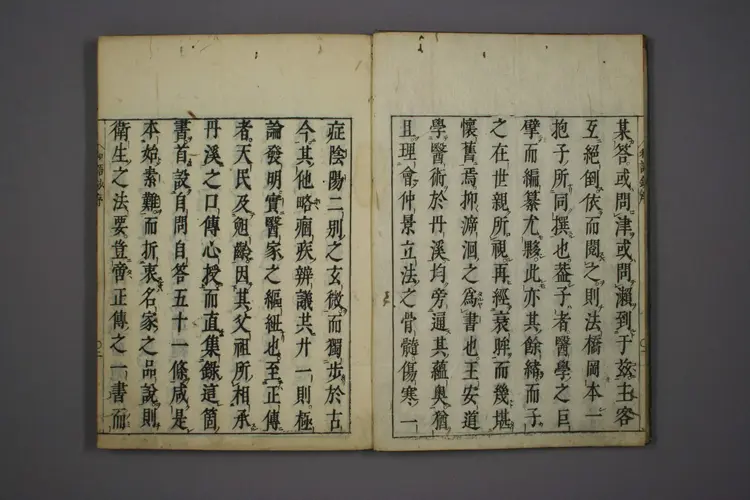 某答或問津或問瀨到于玆主客
互絕倒依而閱之則法橋岡本一
抱子所同撰也蓋子者醫學之巨
擘而編纂尤夥此亦其餘緒而子
之在世親所視再經衰眸而幾堪
懷舊焉抑溯洄之爲書也王安道
學醫術於丹溪均旁通其蘊奧猶
且理會仲景立法之骨髓傷寒一
症陰陽二別之玄微而獨步於古
今其他略痼疾辨議共廿一則極
論發明實醫家之樞紐也至正傳
者天民及齠齔因其父祖所相承
丹溪之口傳心授而直集錄這箇
書首設自問自答五十一條咸是
本始素難而折衷名家之品說則
衛生之法要豈帝正傳之一書而